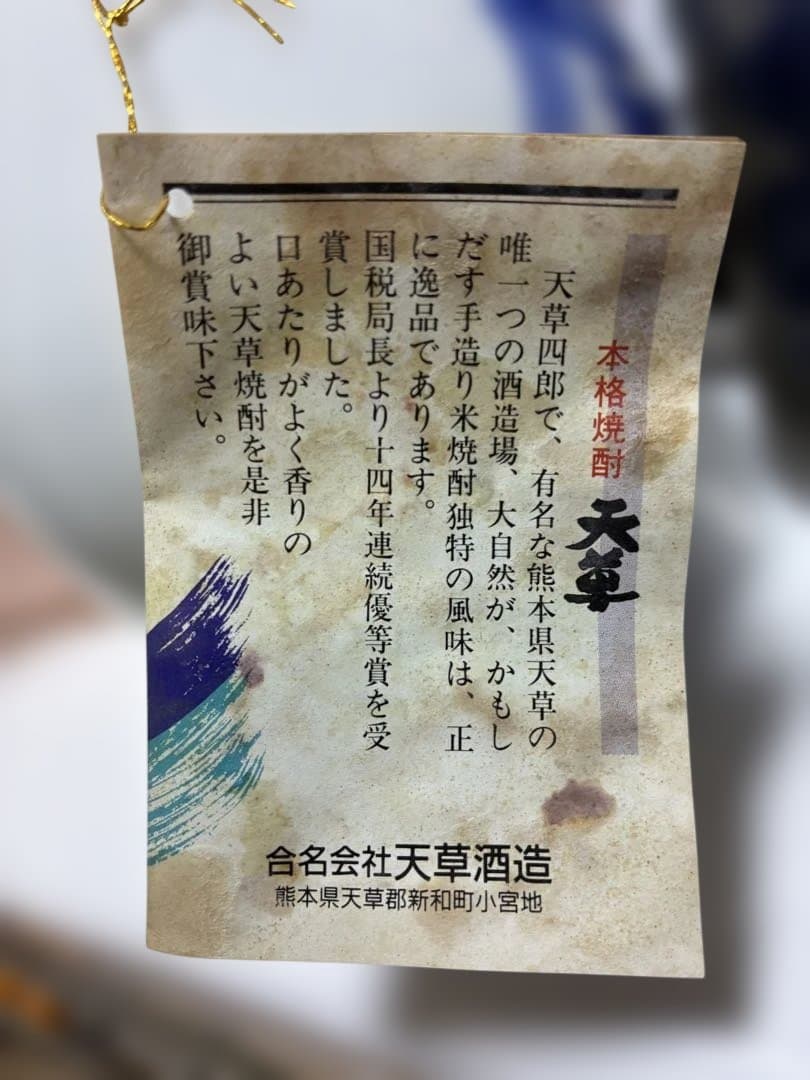 本格焼酎 天草
天草四郎で、有名な熊本県天草の
唯一つの酒造場、大自然が、かもし
だす手造り米焼酎独特の風味は、正
に逸品であります。
国税局長より十四年連続優等賞を受
賞しました。
口あたりがよく香りの
よい天草焼酎を是非
御賞味下さい。
合名会社天草酒造
熊本県天草郡新和町小宮地